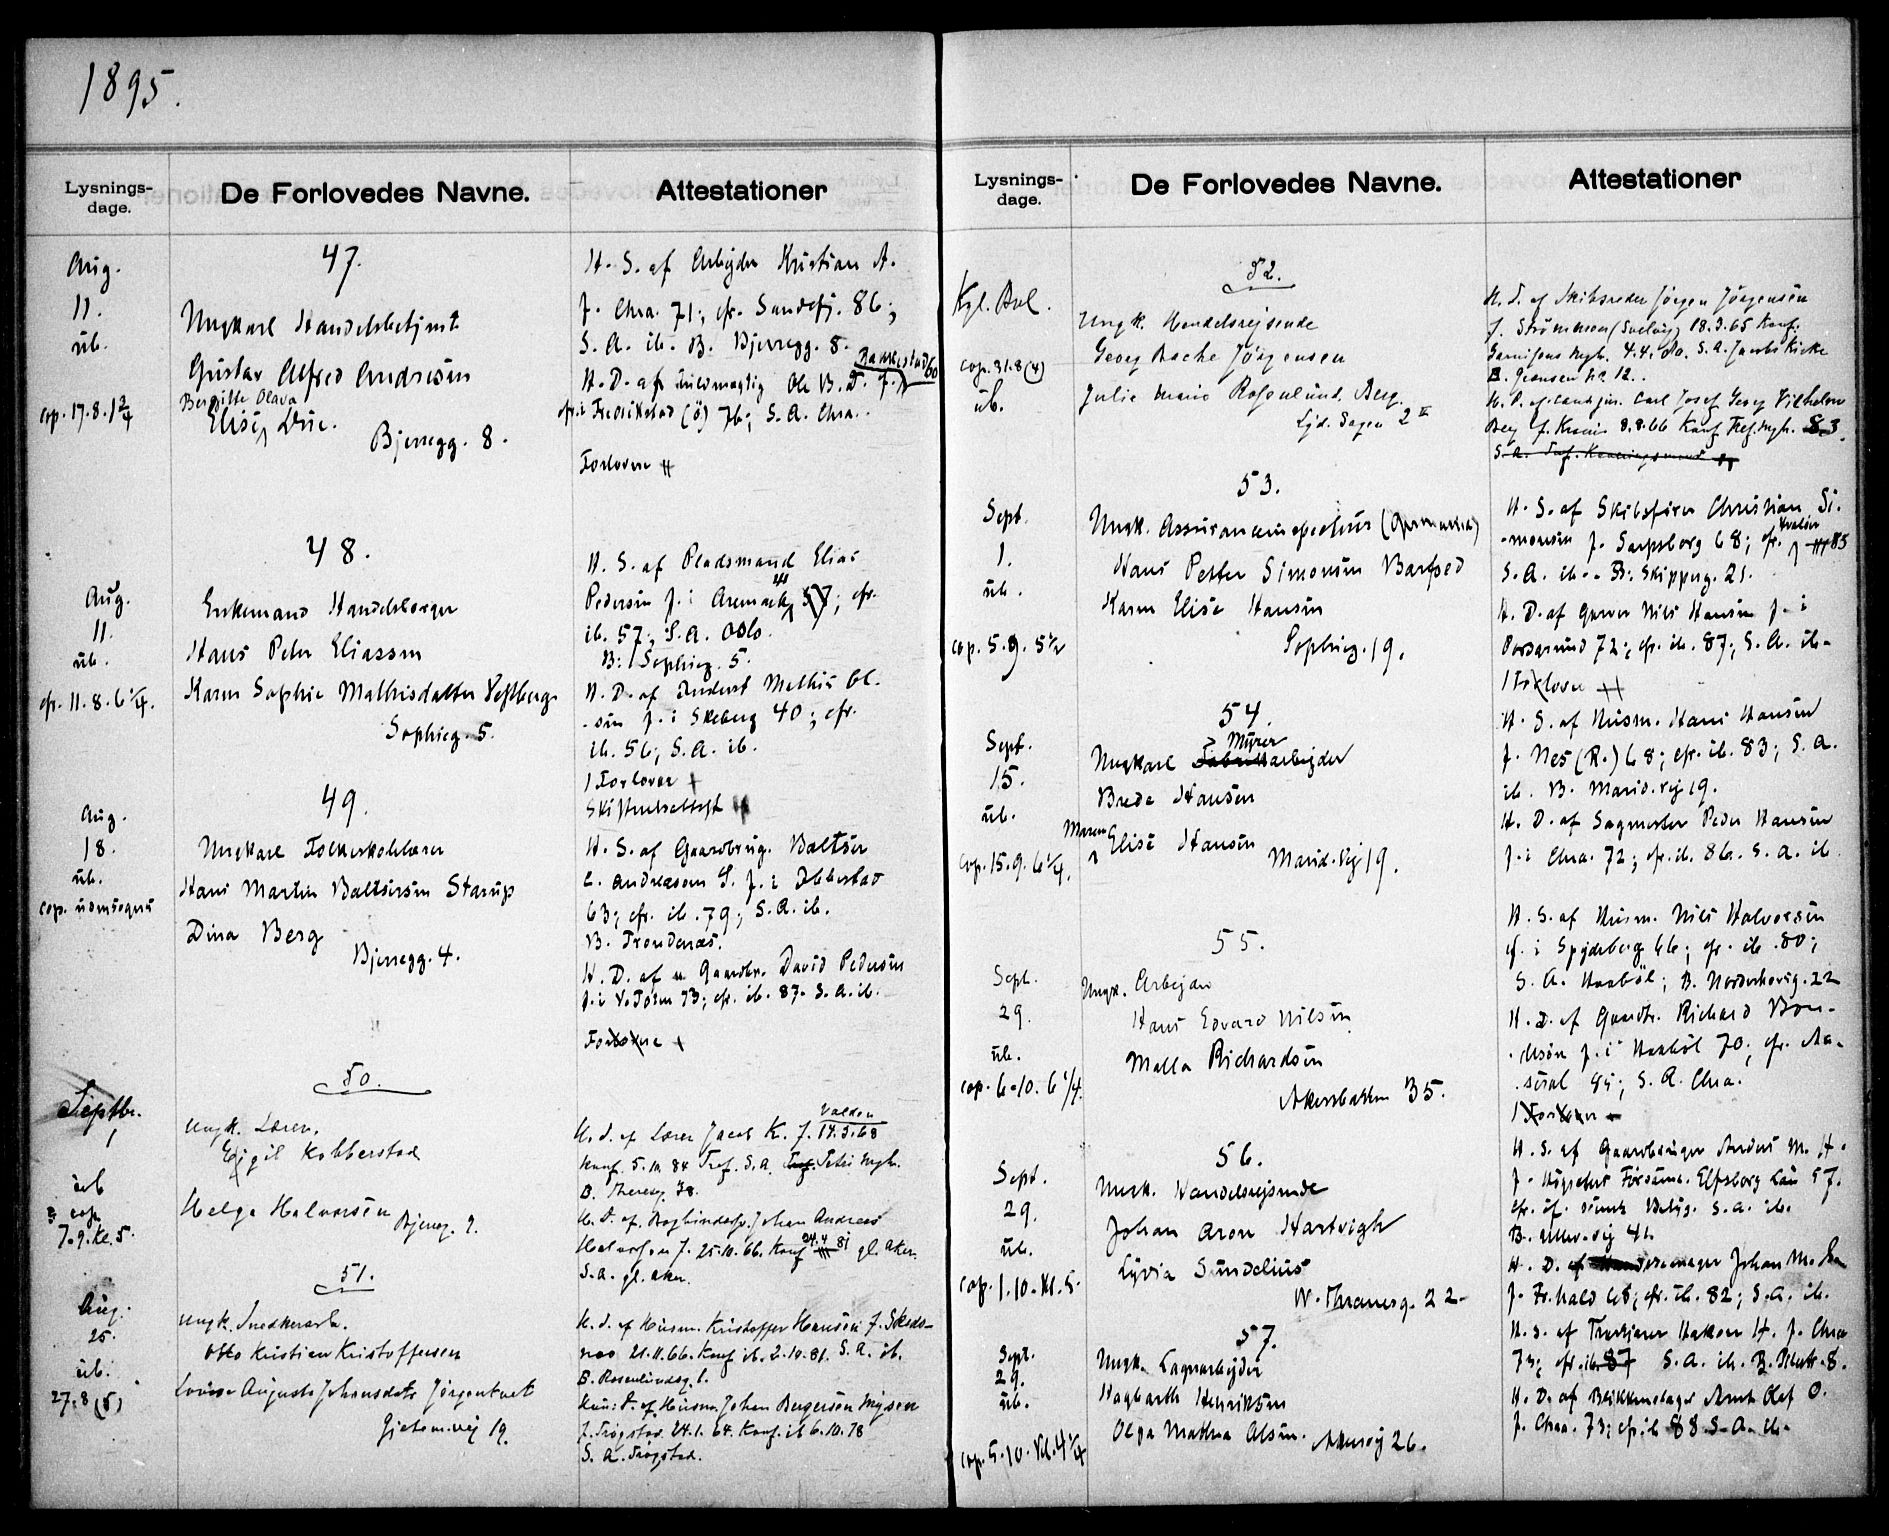 1895.
Lysnings-
dage.
De Forlovedes Navne.
Attestationer
Aug.
11.
üb.
cop. 17.8.
47.
Ungkarl Handelsbetjent
Gustav Alfred Andresen
Bergitte Olava
Elise Lie.
Bjerregg. 8.
H. S. af Arbejder Kristian A.
f. Chra. 71; cfr. Sandefj. 86;
S. A. ib. B. Bjerregg. 8.
H. D. af
Fredrikstad (ö) 76; S. A. Chra.
Forlovere
Aug.
11.
üb.
cfr. 11.8.6¼.
48.
Enkemand Handelsborger
Hans Peter Eliassen
Karen Sophie Mathisdatter Vestberg
Sophieg. 5.
H. S. af Pladsmand Elias
Pedersen f. i Aremark
ib. 57; S. A. Oslo.
B: Sophieg. 5.
H. D. af Inderst Mathis El.
sen f. i Skeberg 40; cfr.
ib. 56; S. A. ib.
1 Forlover
Skifteattest
Aug.
18.
üb.
cop. udensogns
49.
Ungkarl
Hans Martin Baltsersen Starup
Dina Berg
Bjerregg. 4.
H. S. af Gaardbrug. Baltser
C. Andreasen S. f. i Ibbestad
63; cfr. ib. 79; S. A. ib.
B. Trondenæs.
H. D. af Gaardbr. David Pedersen
73; cfr. ib. 87. S. A. ib.
Forlovere
Septbr.
1
üb
cop
7.9. Kl. 5.
50.
Ungk. Lærer.
Eigil Kobberstad
Helga Halvorsen
Bjerreg. 9.
H. S. af Lærer Jacob K. f. 14.3.68
Konf. 5.10.84 Tref. S. A. Petri Mgh.
B. Thereseg. 38.
H. D. af Bogbinder Johan Andreas
Halvorsen f. 25.10.66. Konf 24.4 81 gl. Aker.
S. A. gl. Aker.
Aug.
25.
üb.
27.8 (5)
51.
Ungk. Snedkerarb.
Otto Kristian Kristoffersen
Lovise Augusta Johansdatr Jørgentvet
Gjetemvej 19.
H. S. af Husm. Kristoffer Hansen f. Skeds-
moe 21.11.66. Konf ib. 2.10.81. S. A. ib.
B. Rosenlundsg. 1.
D. af Husm. Johan Bergersen Mysen
f. Trøgstad. 24.1.64. Konf. ib 6.10.78
S. A. Trøgstad.
Lysnings-
dage.
De Forlovedes Navne.
Attestationer
Kgl. Bvl.
cop. 31.8 (4)
üb.
52.
Ungk. Handelsrejsende
Georg Bache Jörgensen
Julie Marie Rosenlund Berg.
Lyd. Sagen 2 II
H. S. af Skibsreder Jørgen Jörgensen
f. Strømmen (Svelvig) 18.3.65 Konf.
Garnisons Mgh. 4.4. S. A. Jacobs Kirke
B. Grænsen No 12.
H. D. af Carl Josef Georg Vilhelm
Berg f. Kra 8.8.66 Konf Tref. Mgh. 83.
Sept.
1.
üb.
cop. 5.9. 5½
53.
Ungk. Assuranceinspecteur
Hans Petter Simonsen Barfred
Karen Elise Hansen
Sophieg. 19.
H. S. af Skibsfører Christian Si-
monsen f. Sarpsborg 68; cfr.
S. A. ib. B. Skipperg. 21.
H. D. af Garver Nils Hansen f. i
Porsgrund 72; cfr. ib. 87; S. A. ib.
1 Forlover
Sept.
15.
üb.
cop. 15.9. 6¼.
54.
Murer
Ungkarl arbejder
Brede Hansen
Maren
Elise Hansen
Marid. Vej 19.
H. S. af Husm. Hans Hansen
f. Nes (R.) 68; cfr. ib. 83; S. A.
ib. B. Marid. vej 19.
H. D. af Sagmester Peder Hansen
f. i Chra. 72; cfr. ib. 86. S. A. ib
Sept.
29.
üb.
cop. 6.10. 6¼.
55.
Ungk. Arbejder
Hans Edvard Nilsen
Malla Richardsen
Akersbakken 35.
H. S. af Husm. Nils Halvorsen
f. i Spydeberg 66; cfr. ib. 80;
S. A. Haaböl; B. Nordenhovsg. 22
H. D. af Gaardbr. Richard
f. i Haaböl 70; cfr. Aa-
seral 85; S. A. Chra.
1 Forlover
Sept.
29.
üb.
cop. 1.10. Kl. 5.
56.
Ungk. Handelsrejsende
Johan Aron Hartvigh
Lydia Sundelius
W. Thranesg. 22.
H. S. af Gaardbruger Anders M. H.
f. Elfsborg Län 57.
S. A. ib.
B. Ullev. vej 41.
H. D. Johan M.
f. Fr.hald 65; cfr. ib. 82; S. A. ib.
Sept.
29.
üb.
cop. 5.10. Kl. 4¼
57.
Ungk. Lagerarbejder
Hagbarth Henriksen
Olga Mathea Olsen.
Akersvej 26.
H. S. af Hakon H. f. Chra
73; cfr. ib. 87 S. A. ib. B. 8.
H. D. af Blikkenslager Olaf O.
f. Chra. 73; cfr. ib 88 S. A. ib.